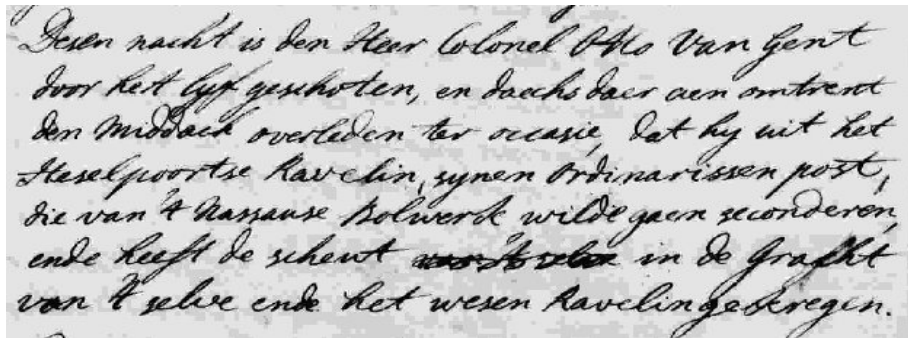 Desen nacht is den Heer Colonel Otto Van Gent
door het lyf geschoten, en daechs daer aen omtrent
den Middach overleden ter occasie, dat hy uit het
Heselpoortse Ravelin, synen Ordinarissen post,
die van 't Nassause Bolwerk wilde gaen seconderen,
ende heeft de scheut in de Grafht
van 't selve ende het wesen Ravelin gekregen.